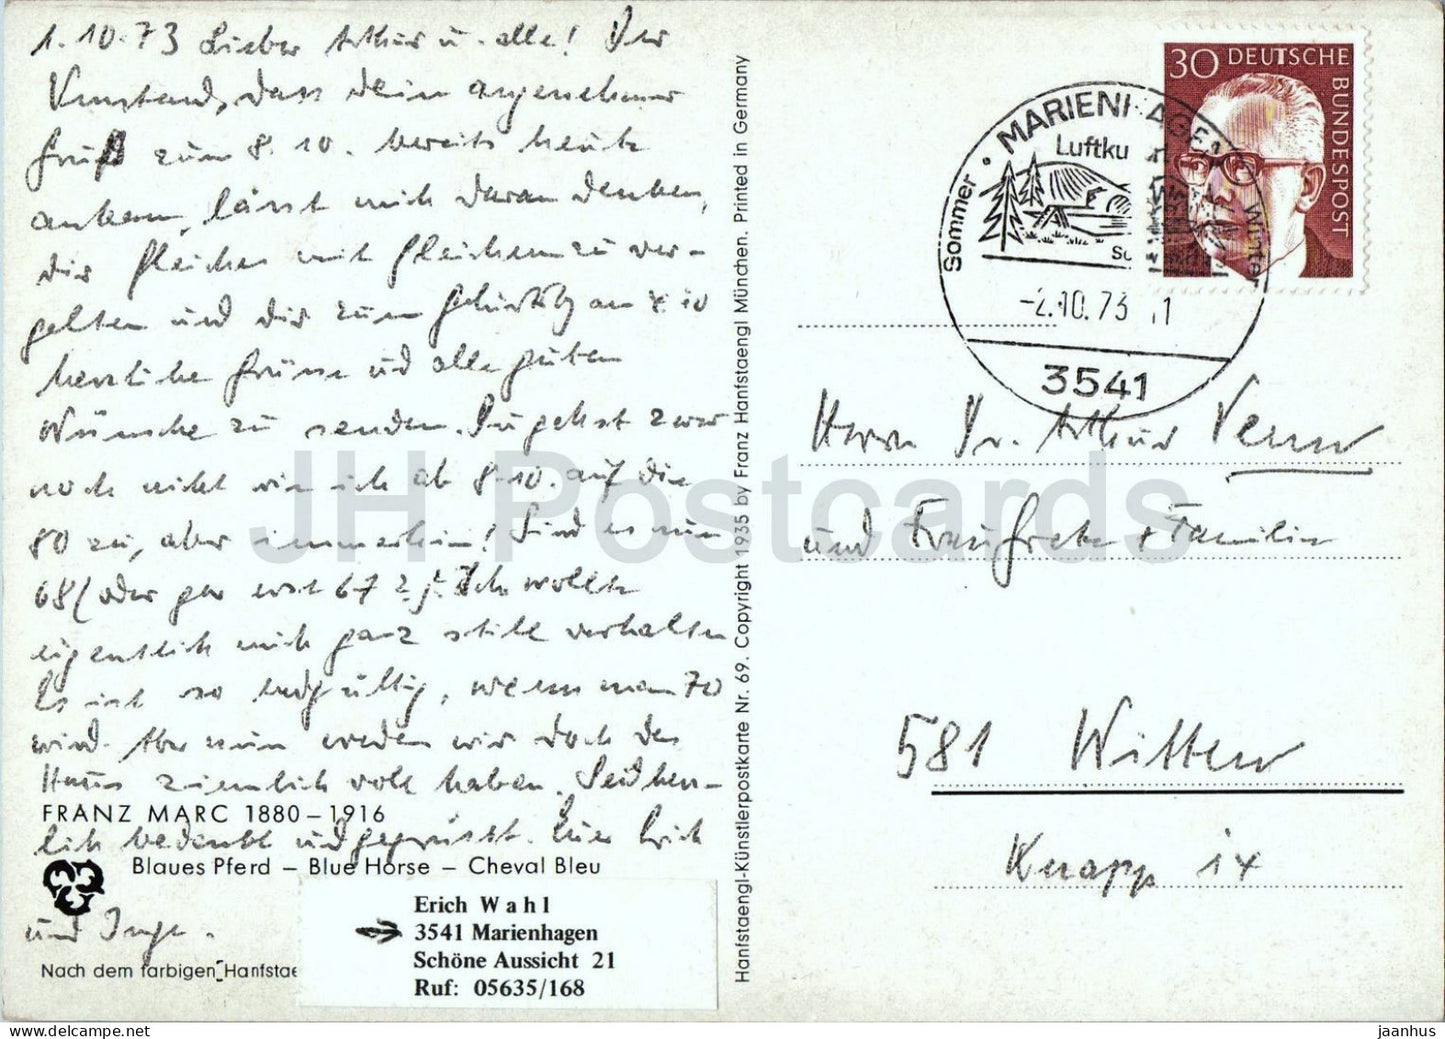 1.10.73 Lieber Arthur u. alle! Der
Umstand, dass dein angenehmer
Gruß zum 8.10. bereits heute
ankam, lässt mich daran denken,
dir Gleiches mit Gleichem zu ver-
gelten und dir zum Geburtstg am 8.10
herzliche Grüsse und alle guten
Wünsche zu senden. Du gehst zwar
noch nicht wie ich ab 8.10. auf die
80 zu, aber immerhin! Sind es nun
68 (oder gar erst 67?). Ich wollte
eigentlich mich ganz still verhalten
Es ist so endgültig, wenn man 70
wird. Aber nun werden wir doch das
Haus ziemlich voll haben. Seid herz-
FRANZ MARC 1880–1916
lich bedankt und gegrüsst. Euer Erich
Blaues Pferd – Blue Horse – Cheval Bleu
und Inge.
Nach dem farbigen Hanfstae
Erich Wahl
3541 Marienhagen
Schöne Aussicht 21
Ruf: 05635/168
Hanfstaengl-Künstlerpostkarte Nr. 69. Copyright 1935 by Franz Hanfstaengl München. Printed in Germany
30 DEUTSCHE
BUNDESPOST
MARIENHAGEN
Luftku
Sommer
Winter
-2.10.73
3541
Herrn Dr. Arthur
und Frau Grete + Familie
581 Witten
Knapp 14
JH Postcards
jaanhus